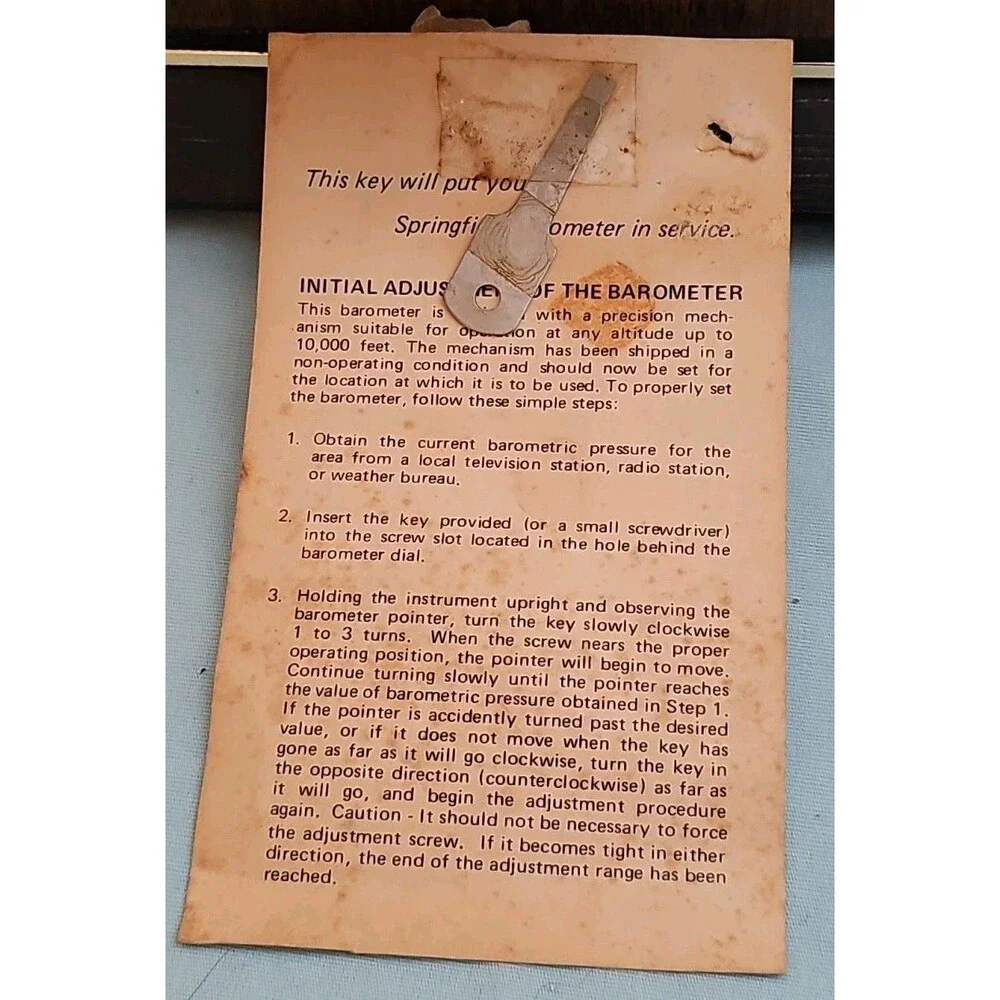 This key will put you
Springfi ometer in service.
INITIAL ADJUS OF THE BAROMETER
This barometer is with a precision mech-
anism suitable for op on at any altitude up to
10,000 feet. The mechanism has been shipped in a
non-operating condition and should now be set for
the location at which it is to be used. To properly set
the barometer, follow these simple steps:
1. Obtain the current barometric pressure for the
area from a local television station, radio station,
or weather bureau.
2. Insert the key provided (or a small screwdriver)
into the screw slot located in the hole behind the
barometer dial.
3. Holding the instrument upright and observing the
barometer pointer, turn the key slowly clockwise
1 to 3 turns. When the screw nears the proper
operating position, the pointer will begin to move.
Continue turning slowly until the pointer reaches
the value of barometric pressure obtained in Step 1.
If the pointer is accidently turned past the desired
value, or if it does not move when the key has
gone as far as it will go clockwise, turn the key in
the opposite direction (counterclockwise) as far as
it will go, and begin the adjustment procedure
again. Caution - It should not be necessary to force
the adjustment screw. If it becomes tight in either
direction, the end of the adjustment range has been
reached.